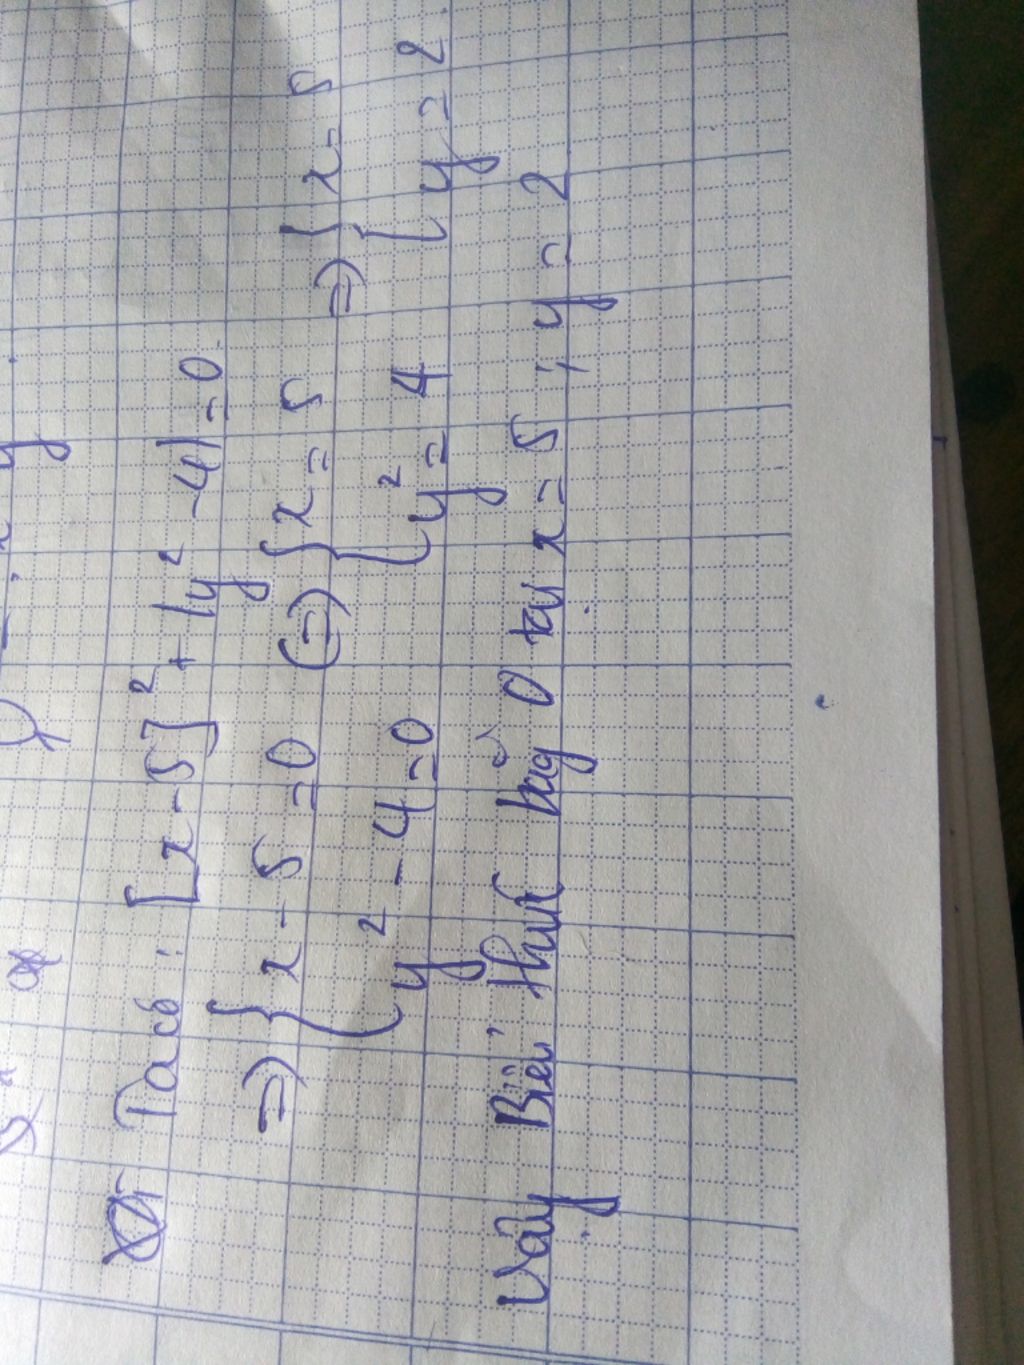 Ta có : [x-5]² + |y² -4|=0
=> { x - 5 =0 (=) { x = 5 => { x = 5
y² - 4 =0 y² = 4 y = 2
Vậy Biểu thức bằg 0 tại x = 5 ; y = 2